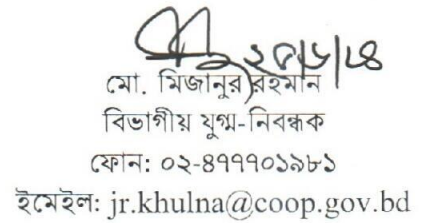 ২৫/৮/২৪
মো. মিজানুর রহমান
বিভাগীয় যুগ্ম-নিবন্ধক
ফোন: ০২-৪৭৭৭০১৯৮১
ইমেইল: jr.khulna@coop.gov.bd